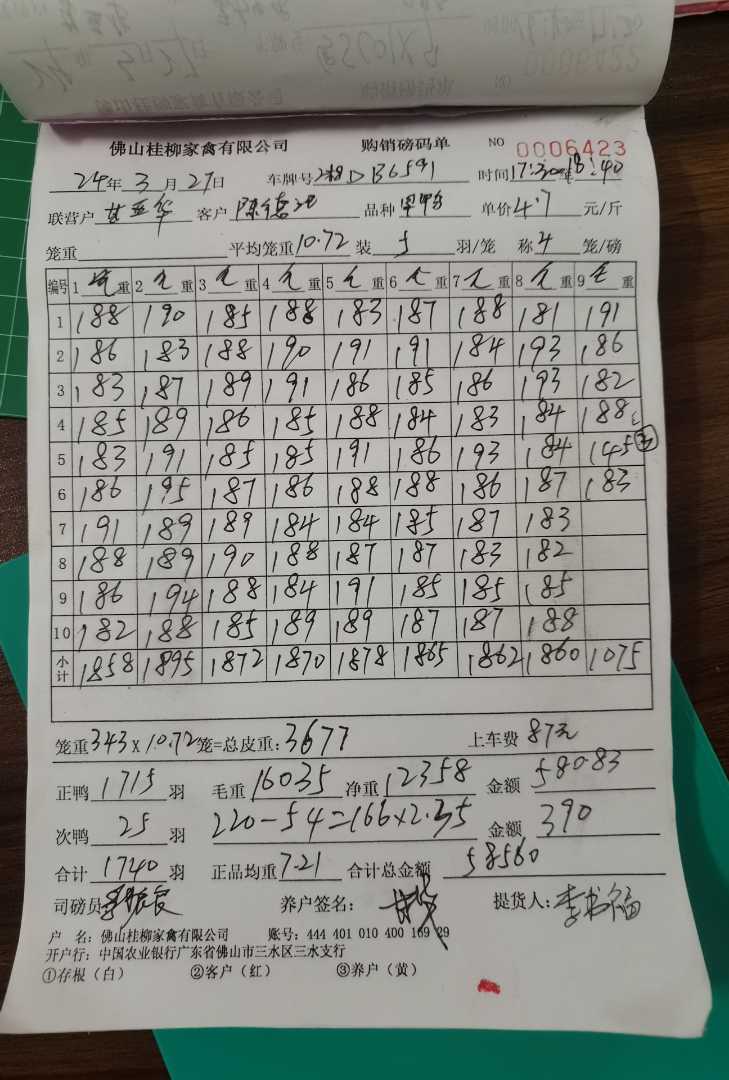 佛山桂柳家禽有限公司 购销磅码单 NO 0006423
24年3月27日 车牌号 DB6591 时间17:30 18:40
联营户 甘亚华 客户 陈德 品种 单价4.7元/斤
笼重 平均笼重10.72 装5羽/笼 称4笼/磅
编号 1 毛重 2 毛重 3 毛重 4 毛重 5 毛重 6 毛重 7 毛重 8 毛重 9 毛重
1 188 190 185 188 183 187 188 181 191
2 186 183 188 190 191 191 184 193 186
3 183 187 189 191 186 185 186 193 182
4 185 189 186 185 188 184 183 184 188
5 183 191 185 185 191 186 193 184 145 ③
6 186 195 187 186 188 188 186 187 183
7 191 189 189 184 184 185 187 183
8 188 189 190 188 187 187 183 182
9 186 194 188 184 191 185 185 185
10 182 188 185 189 189 187 187 188
小计 1858 1895 1872 1870 1878 1865 1862 1860 1075
笼重343×10.72笼=总皮重:3677 上车费 87元
正鸭1715羽 毛重16035 净重12358 金额58083
次鸭25羽 220-54=166×2.35 金额390
合计1740羽 正品均重7.21 合计总金额58560
司磅员 养户签名: 提货人:李书福
户 名:佛山桂柳家禽有限公司 账号:444 401 010 400 169 29
开户行:中国农业银行广东省佛山市三水区三水支行
①存根(白) ②客户(红) ③养户(黄)